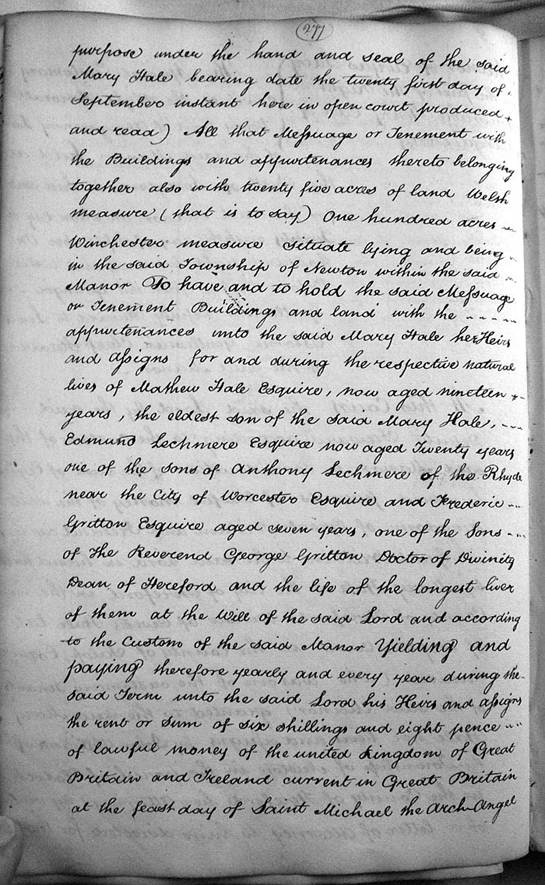 277
purpose under the hand and seal of the said
Mary Hale bearing date the twenty first day of
September instant here in open court produced
and read) All that Messuage or Tenement with
the Buildings and appurtenances thereto belonging
together also with twenty five acres of land Welsh
measure (that is to say) One hundred acres
Winchester measure situate lying and being
in the said Township of Newton within the said
Manor To have and to hold the said Messuage
or Tenement Buildings and land with the
appurtenances unto the said Mary Hale her Heirs
and Assigns for and during the respective natural
lives of Mathew Hale Esquire, now aged nineteen
years, the eldest son of the said Mary Hale,
Edmund Lechmere Esquire now aged Twenty years
one of the sons of Anthony Lechmere of the Rhyde
near the City of Worcester Esquire and Frederic
Gritton Esquire aged seven years, one of the Sons
of the Reverend George Gritton Doctor of Divinity
Dean of Hereford and the life of the longest liver
of them at the Will of the said Lord and according
to the Custom of the said Manor Yielding and
paying therefore yearly and every year during the
said Term unto the said Lord his Heirs and assigns
the rent or sum of six shillings and eight pence
of lawful money of the united kingdom of Great
Britain and Ireland current in Great Britain
at the feast day of Saint Michael the Arch-Angel